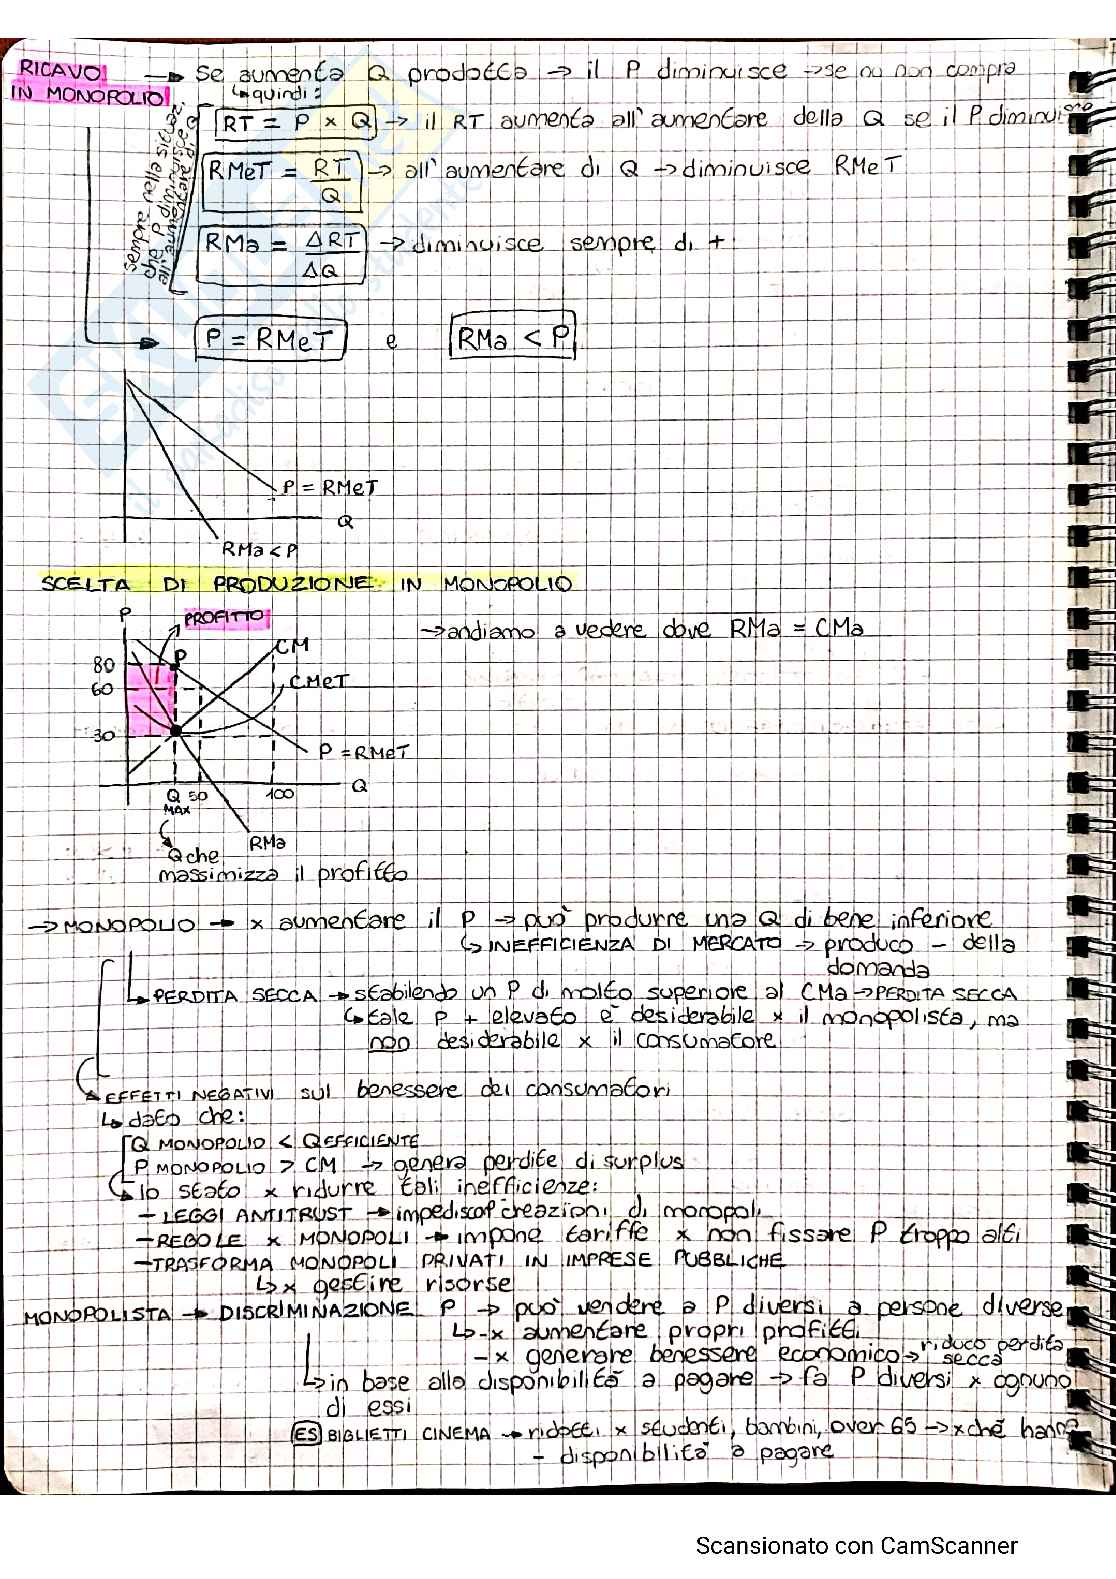 RICAVO IN MONOPOLIO → se aumenta Q prodotta → il P diminuisce → se no non compra
↳ quindi:
RT = P × Q → il RT aumenta all'aumentare della Q se il P diminuisce
RMeT = RT/Q → all'aumentare di Q → diminuisce RMeT
RMa = ΔRT/ΔQ → diminuisce sempre di +
P = RMeT e RMa < P
P = RMeT
Q
RMa < P
SCELTA DI PRODUZIONE IN MONOPOLIO
→ andiamo a vedere dove RMa = CMa
P
PROFITTO
CM
80
P
60
CMeT
30
P = RMeT
Q MAX 50 100 Q
RMa
Q che massimizza il profitto
→ MONOPOLIO → × aumentare il P → può produrre una Q di bene inferiore
↳ INEFFICIENZA DI MERCATO → produco - della domanda
↳ PERDITA SECCA → stabilendo un P di molto superiore al CMa → PERDITA SECCA
↳ tale P + elevato è desiderabile × il monopolista, ma
non desiderabile × il consumatore
EFFETTI NEGATIVI sul benessere dei consumatori
↳ dato che:
Q MONOPOLIO < Q EFFICIENTE
P MONOPOLIO > CM → genera perdite di surplus
↳ lo stato × ridurre tali inefficienze:
- LEGGI ANTITRUST → impedisco creazioni di monopoli
- REGOLE × MONOPOLI → impone tariffe × non fissare P troppo alti
- TRASFORMA MONOPOLI PRIVATI IN IMPRESE PUBBLICHE
↳ × gestire risorse
MONOPOLISTA → DISCRIMINAZIONE P → può vendere a P diversi a persone diverse
↳ - × aumentare propri profitti
- × generare benessere economico → riduco perdita secca
↳ in base alla disponibilità a pagare → fa P diversi × ognuno
di essi
ES BIGLIETTI CINEMA → ridotti × studenti, bambini, over 65 → ×ché hanno
- disponibilità a pagare
Scansionato con CamScanner